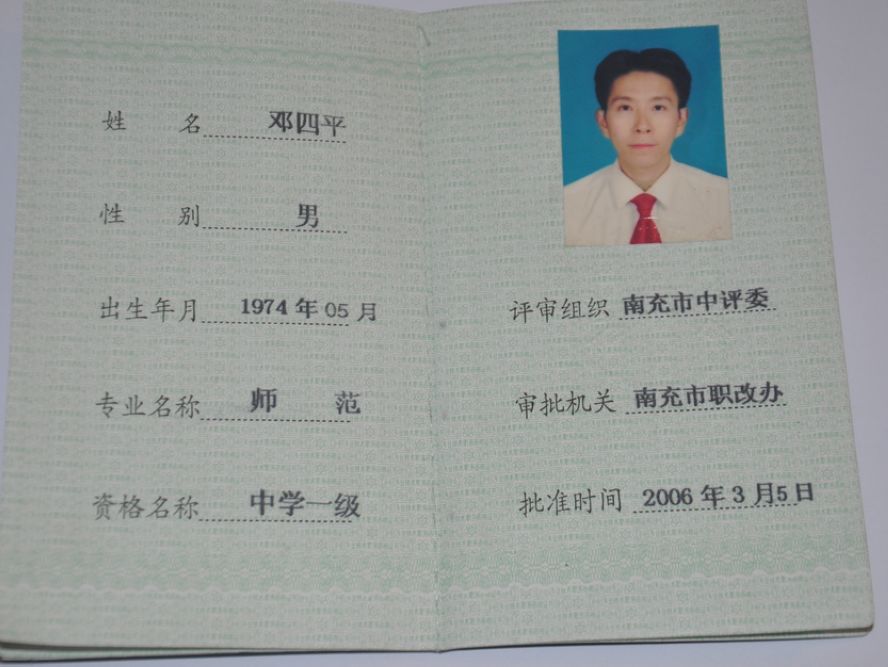 姓 名 邓四平
性 别 男
出生年月 1974年05月
专业名称 师 范
资格名称 中学一级
评审组织 南充市中评委
审批机关 南充市职改办
批准时间 2006年3月5日